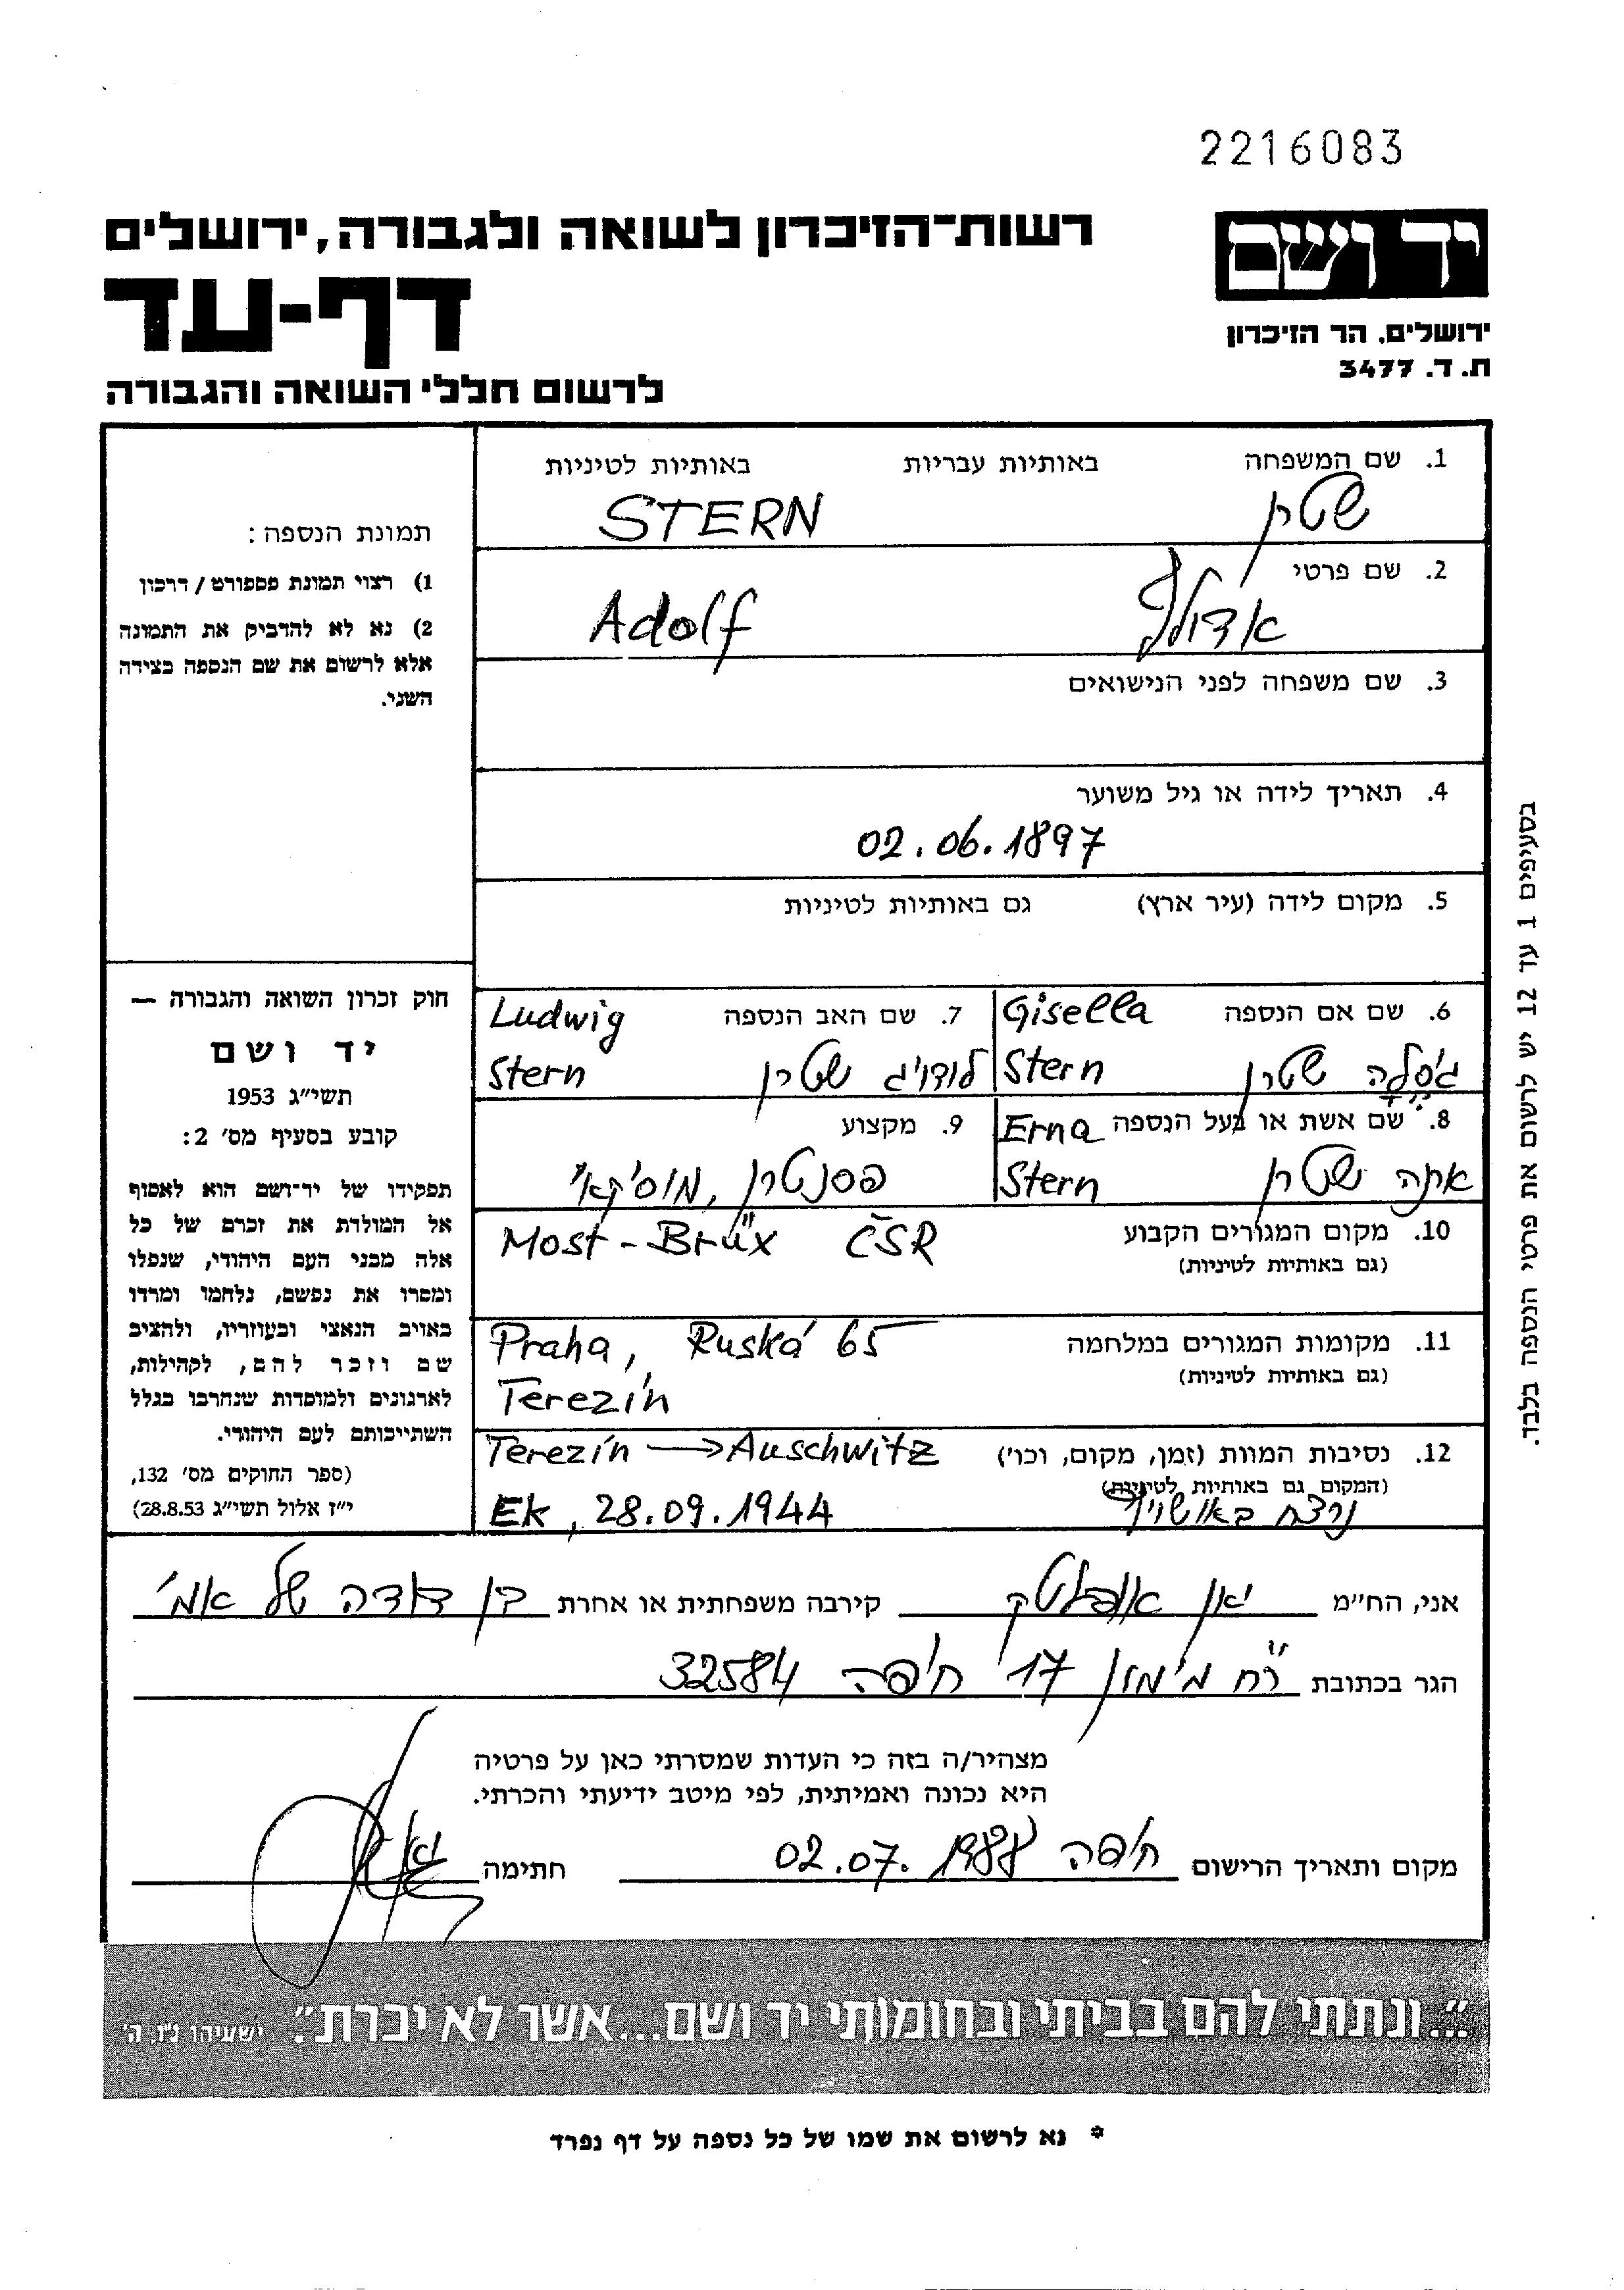 2216083
יד ושם
רשות־הזיכרון לשואה ולגבורה, ירושלים
דף-עד
ירושלים, הר הזיכרון
ת. ד. 3477
לרשום חללי השואה והגבורה
1. שם המשפחה באותיות עבריות באותיות לטיניות
שטרן STERN
2. שם פרטי
אדולף Adolf
3. שם משפחה לפני הנישואים
4. תאריך לידה או גיל משוער
02.06.1897
5. מקום לידה (עיר ארץ) גם באותיות לטיניות
6. שם אם הנספה Gisella
שטרן Stern
7. שם האב הנספה Ludwig
לודויג שטרן Stern
8. שם אשת או בעל הנספה Erna
ארנה שטרן Stern
9. מקצוע
פסנטרן, מוסיקאי
10. מקום המגורים הקבוע Most - Brüx ČSR
(גם באותיות לטיניות)
11. מקומות המגורים במלחמה Praha, Ruská 65
(גם באותיות לטיניות) Terezín
12. נסיבות המוות (זמן, מקום, וכו') Terezín → Auschwitz
(המקום גם באותיות לטיניות)
נרצח באושויץ Ek, 28.09.1944
תמונת הנספה:
1) רצוי תמונת פספורט / דרכון
2) נא לא להדביק את התמונה
אלא לרשום את שם הנספה בצידה
השני.
חוק זכרון השואה והגבורה —
יד ושם
תשי״ג 1953
קובע בסעיף מס׳ 2:
תפקידו של יד־ושם הוא לאסוף
אל המולדת את זכרם של כל
אלה מבני העם היהודי, שנפלו
ומסרו את נפשם, נלחמו ומרדו
באויב הנאצי ובעוזריו, ולהציב
שם וזכר להם, לקהילות,
לארגונים ולמוסדות שנחרבו בגלל
השתייכותם לעם היהודי.
(ספר החוקים מס׳ 132,
י״ז אלול תשי״ג 28.8.53)
בסעיפים 1 עד 12 יש לרשום את פרטי הנספה בלבד.
אני, הח״מ יאן קירבה משפחתית או אחרת בן דודה של אמי
הגר בכתובת רח׳ מימון 17 חיפה 32584
מצהיר/ה בזה כי העדות שמסרתי כאן על פרטיה
היא נכונה ואמיתית, לפי מיטב ידיעתי והכרתי.
מקום ותאריך הרישום חיפה 02.07.1988 חתימה
״...ונתתי להם בביתי ובחומותי יד ושם...אשר לא יכרת״. ישעיהו נ״ו, ה׳
* נא לרשום את שמו של כל נספה על דף נפרד